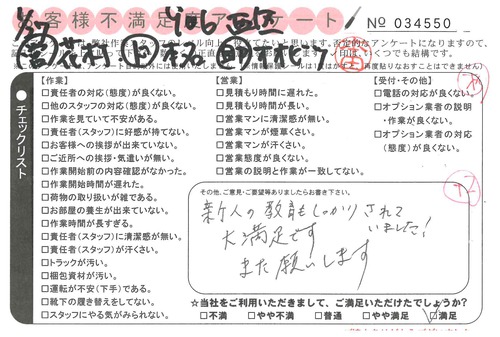 お客様不満足度アンケート
No 034550
チェックリスト
【作業】
□責任者の対応(態度)が良くない。
□他のスタッフの対応(態度)が良くない。
□作業を見ていて不安がある。
□責任者(スタッフ)に好感が持てない。
□お客様への挨拶が出来ていない。
□ご近所への挨拶・気遣いが無い。
□作業開始前の内容確認がなかった。
□作業開始時間が遅れた。
□荷物の取り扱いが雑である。
□お部屋の養生が出来ていない。
□作業時間が長すぎる。
□責任者(スタッフ)に清潔感が無い。
□責任者(スタッフ)が汗くさい。
□トラックが汚い。
□梱包資材が汚い。
□運転が不安(下手)である。
□靴下の履き替えをしてない。
□スタッフにやる気がみられない。
【営業】
□見積もり時間に遅れた。
□見積もり時間が長い。
□営業マンに清潔感が無い。
□営業マンが煙草くさい。
□営業マンが汗くさい。
□営業態度が良くない。
□営業の説明と作業が一致してない。
【受付・その他】
□電話の対応が良くない。
□オプション業者の説明
・作業が良くない。
□オプション業者の対応
(態度)が良くない。
その他、ご意見・ご要望等ありましたらお書き下さい。
新人の教育もしっかりされて
いました!
大満足です
また願いします
☆当社をご利用いただきまして、ご満足いただけたでしょうか?
□不満 □やや不満 □普通 □やや満足 ☑満足